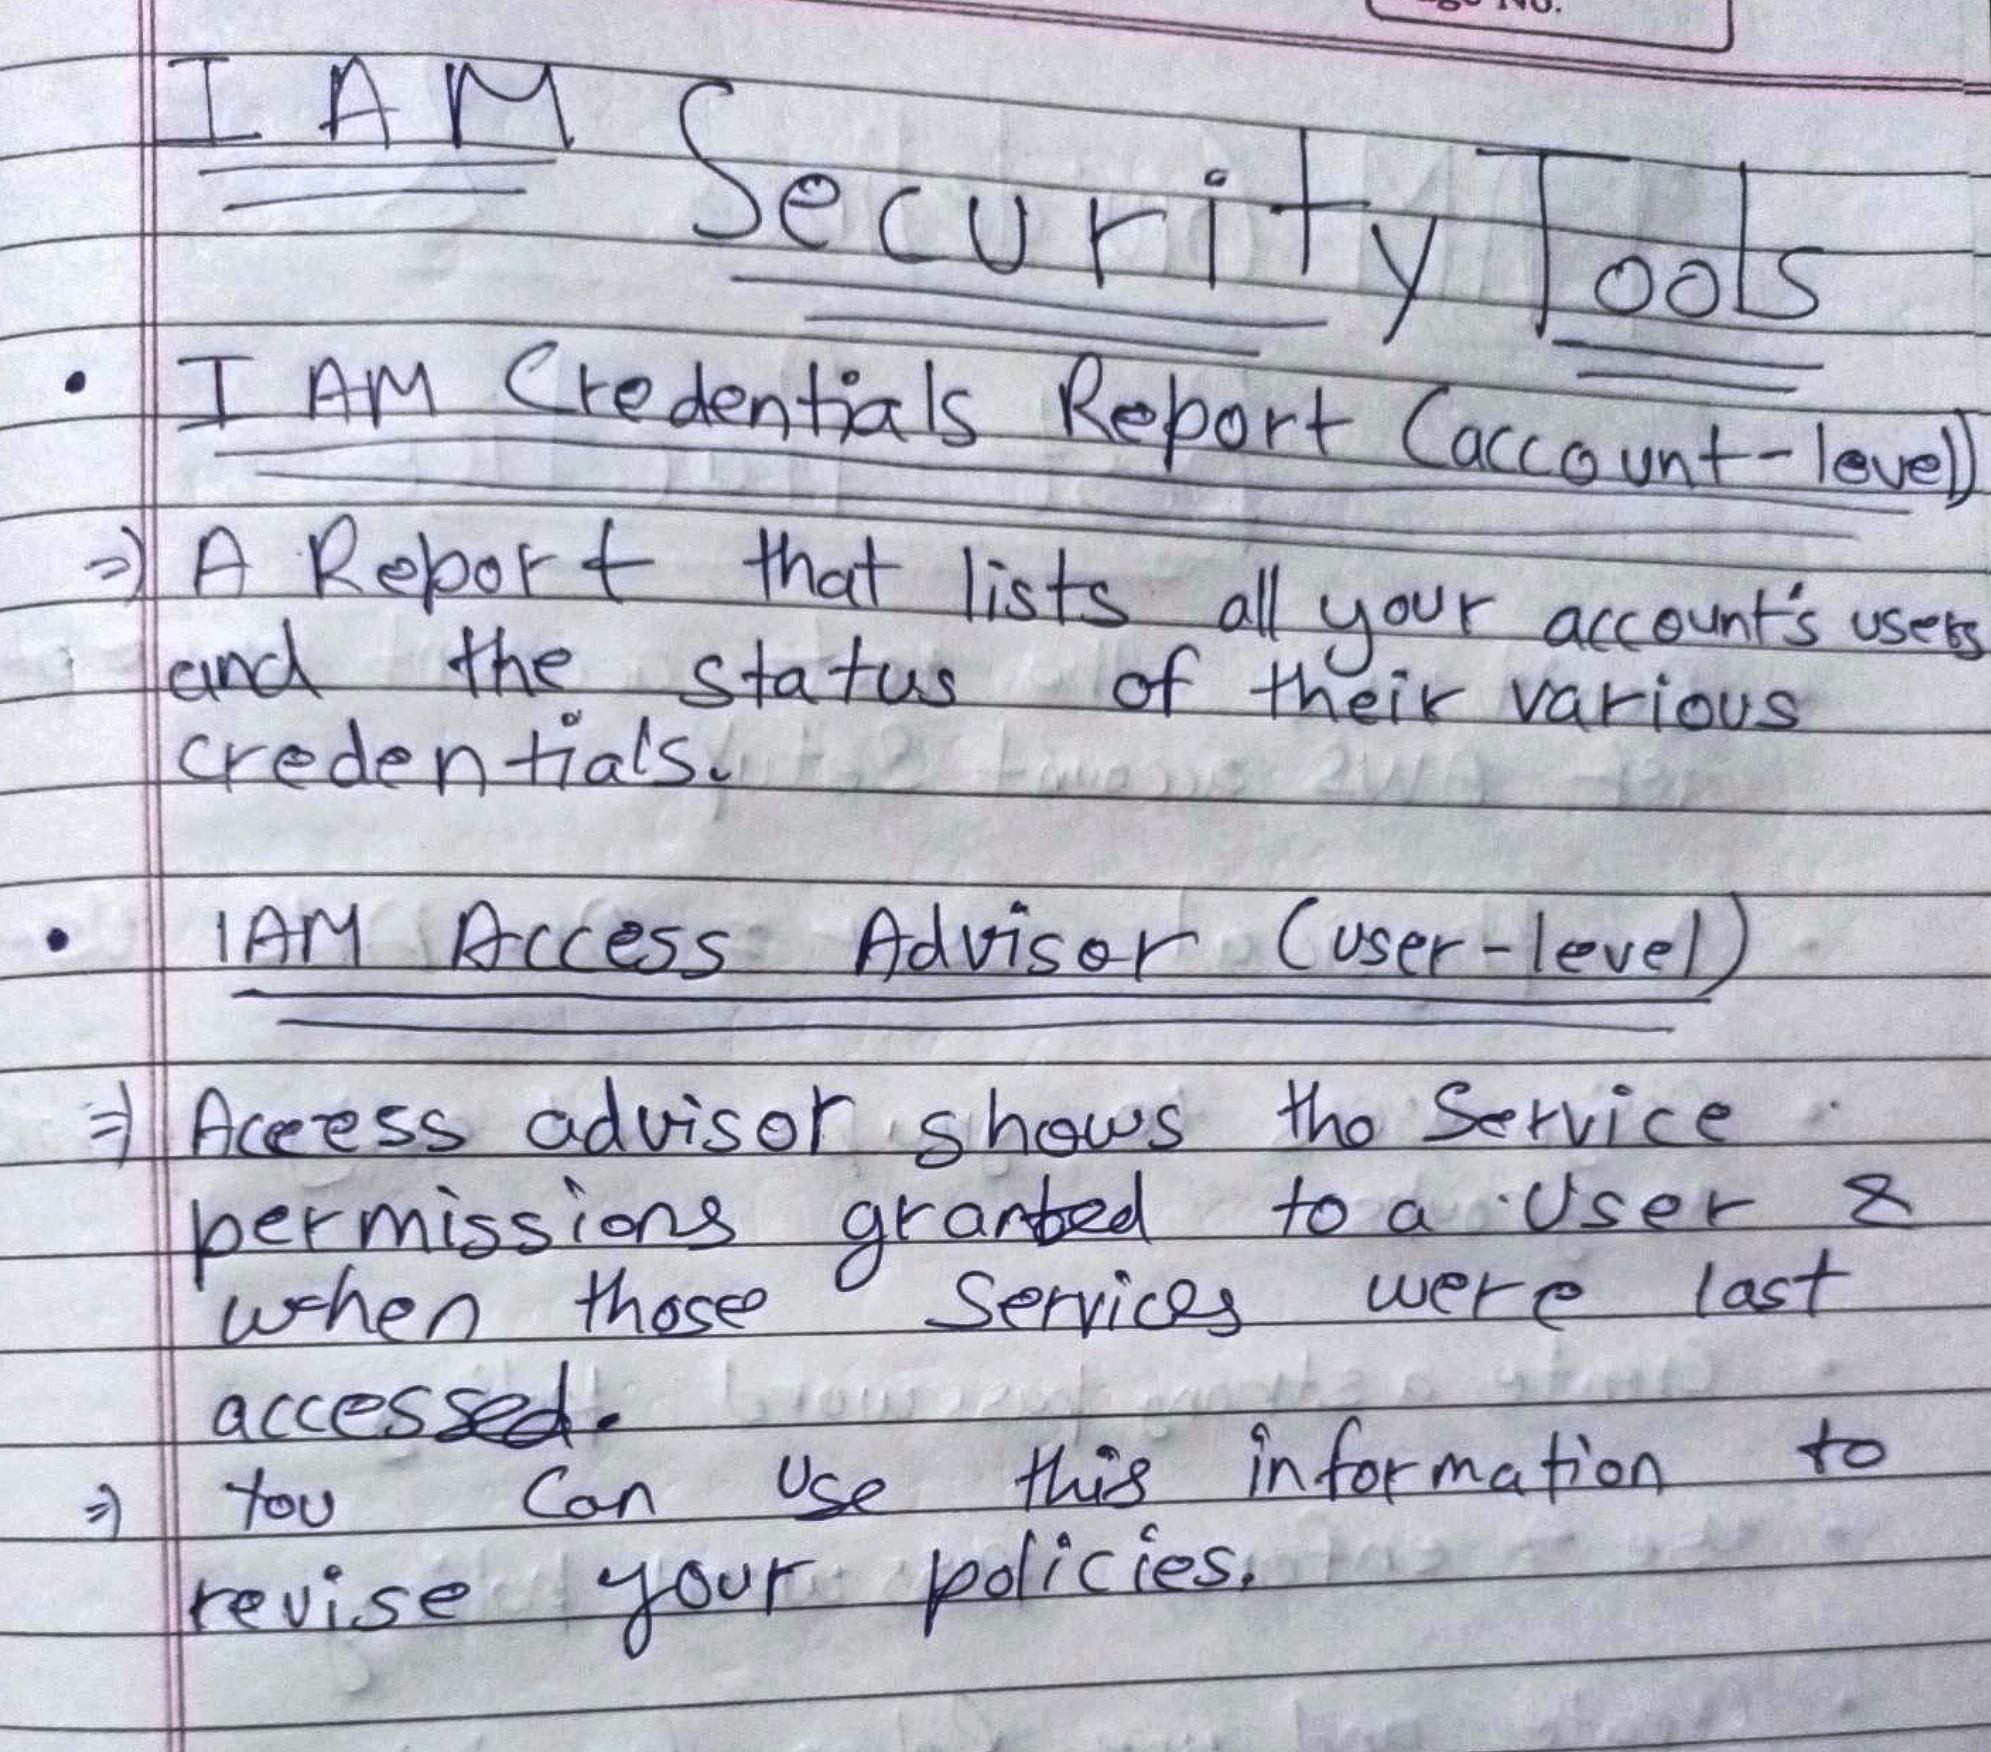 Page No.
IAM Security Tools
• IAM Credentials Report (account-level)
⇒ A Report that lists all your account's users
and the status of their various
credentials.
• IAM Access Advisor (user-level)
⇒ Access advisor shows the Service
permissions granted to a User &
when those Services were last
accessed.
⇒ You Can Use this information to
revise your policies.